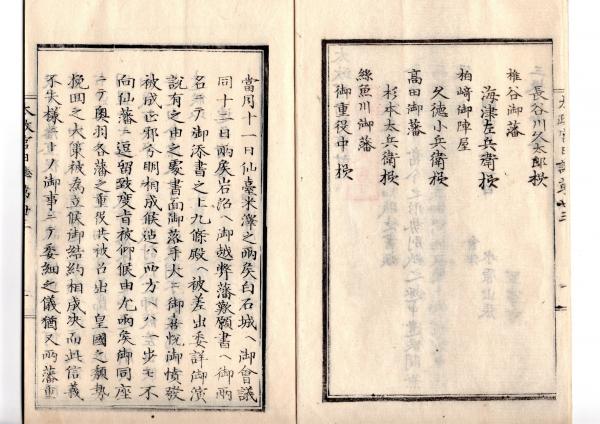 長谷川久太郎様
椎谷御藩
海津左兵衛様
柏崎御陣屋
久德小兵衛様
高田御藩
杉本太兵衛様
絲魚川御藩
御重役中様
太政官日誌第廿三
當月十一日仙臺米澤之兩矦白石城ヘ御會議
同十二日兩矦岩沼ヘ御越弊藩歎願書ヘ御兩
名ニテ御添書之上九條殿ヘ被差出委詳御演
說有之由之處書面御落手大ニ御喜悅御憤發
被成正邪分明相成候迄ハ西方ヘハ一步モ不
向仙藩ニ逗留致度旨被仰候由尤兩矦御同座
ニテ奧羽各藩之重役共被召出 皇國之頽勢
挽回之大策被為立候御結約相成決而此信義
不失樣トノ御事ニテ委細之儀猶又兩藩重